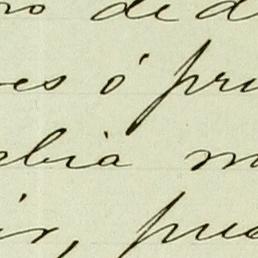 ro de d
es ó pri
bia m
ir, pues